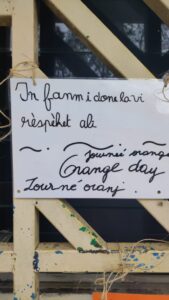 In fanm i done lavi
rèspèket ali
Journée orange
Orange day
Tour né oranj